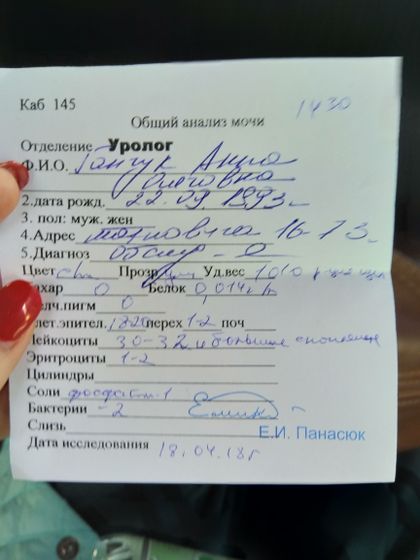 Каб 145
1430
Общий анализ мочи
Отделение Уролог
Ф.И.О. Анна
Олеговна
2.дата рожд. 22.09 1993г.
3. пол: муж. жен
4.Адрес 16-73
5.Диагноз обслед-е
Цвет с/ж Прозр Уд.вес 1010
Сахар 0 Белок 0,014 г/л
Желч.пигм 0
Клет.эпител. перех 1-2 поч
Лейкоциты 30-32 и большие скопления
Эритроциты 1-2
Цилиндры
Соли фосфаты-1
Бактерии -2
Е.И. Панасюк
Слизь
Дата исследования 18.04.18г